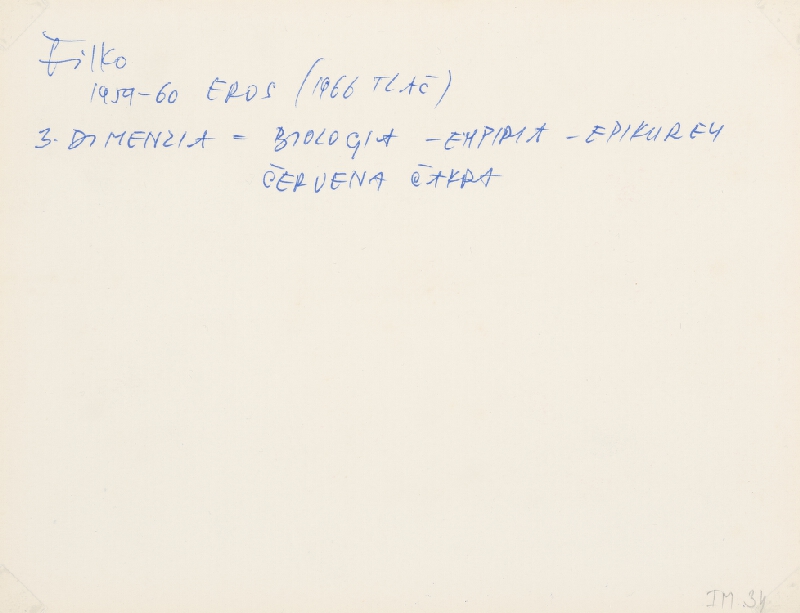 Filko
1959-60 EROS (1966 TLAČ)
3. DIMENZIA = BIOLOGIA - EMPIRIA - EPIKUREY
ČERVENA ČAKRA
IM 34